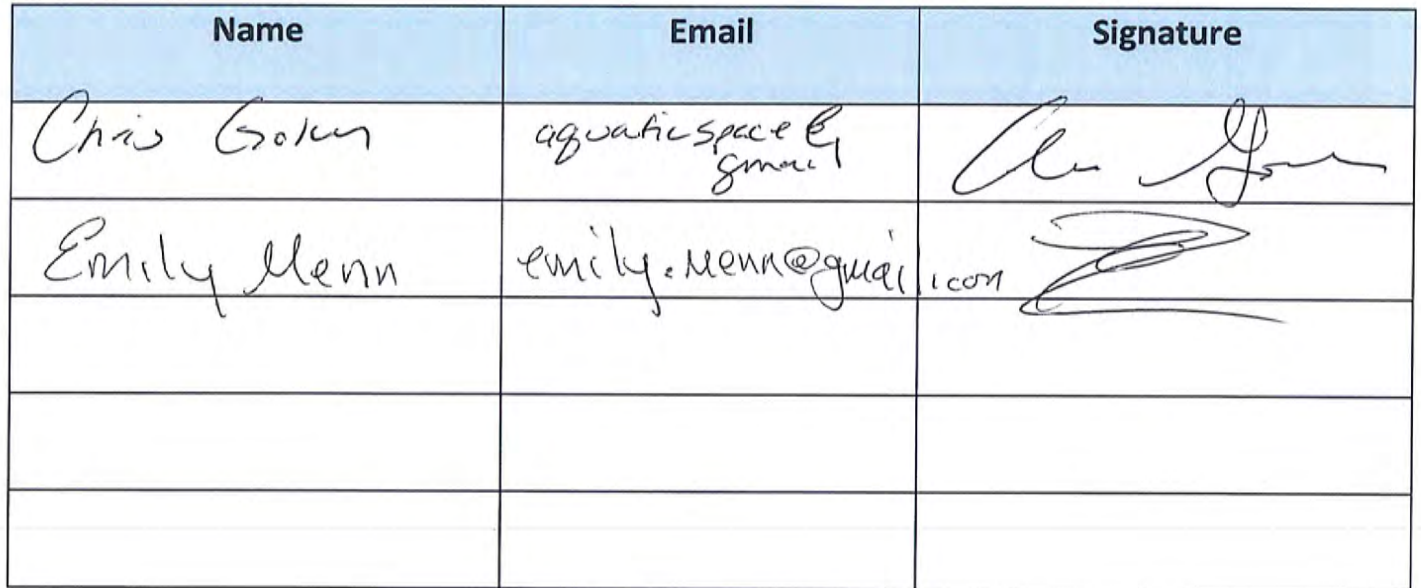 Name Email Signature
Chris aquaticspace@
gmail
Emily Menn emily.menn@gmail.com